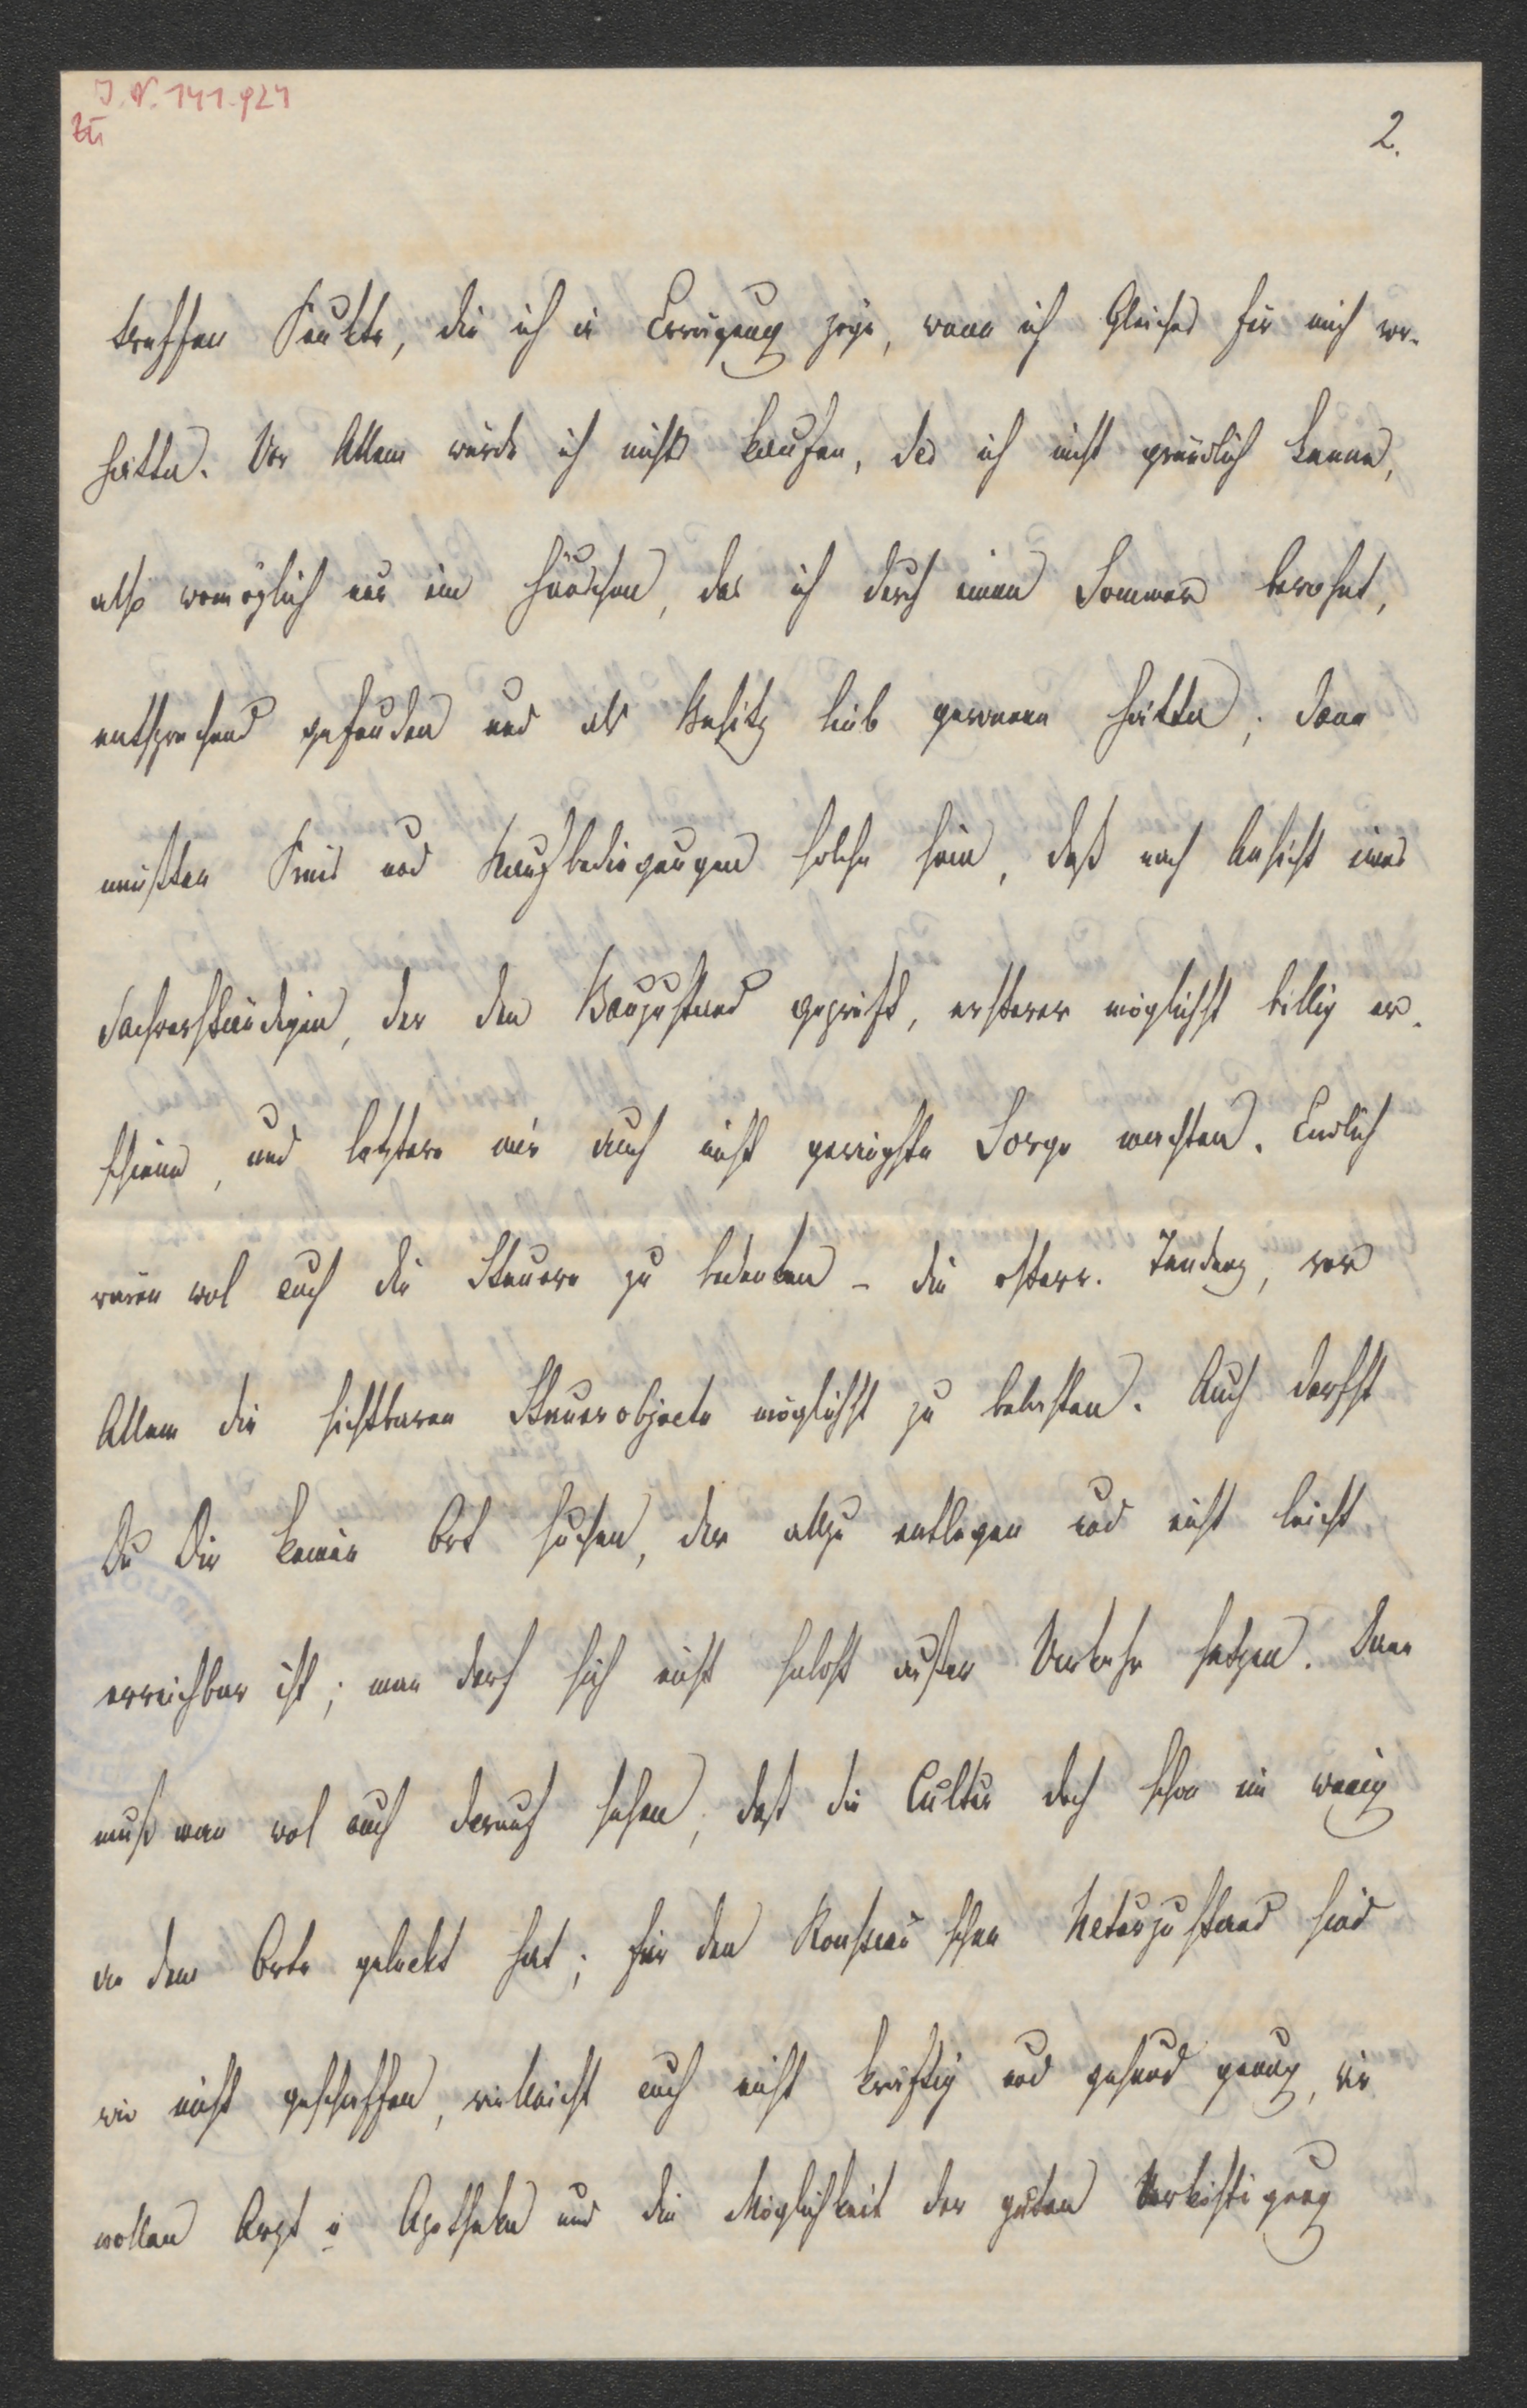 J. N. 141.921
zu
2.
treffen Punkte, die ich in Erwägung zöge, wenn ich Gleiches für mich vor-
hätte. Vor Allem würde ich nichts kaufen, das ich nicht gründlich kenne,
also womöglich nur ein Häuschen, das ich durch einen Sommer bewohnt,
entsprechend gefunden und als Besitz lieb gewonnen hätte; dann
müßten Preis und Kaufbedingungen solche sein, daß nach Ansicht eines
Sachverständigen, der den Bauzustand geprüft, ersterer möglichst billig er-
schiene, und letztere mir auch nicht geringste Sorge machten. Endlich
wären wol auch die Steuern zu bedenken – die österr. Tendenz, vor
Allem die sichtbaren Steuerobjecte möglichst zu belasten. Auch darfst
Du Dir keinen Ort suchen, der allzu entlegen und nicht leicht
erreichbar ist; man darf sich nicht selbst außer Verkehr setzen. Dann
muß man wol auch darauf sehen, daß die Cultur doch schon ein wenig
an dem Orte geleckt hat; für den Rousseau'schen Naturzustand sind
wir nicht geschaffen, vielleicht auch nicht kräftig und gesund genug, wir
wollen Arzt u Apotheke und die Möglichkeit der guten Verköstigung